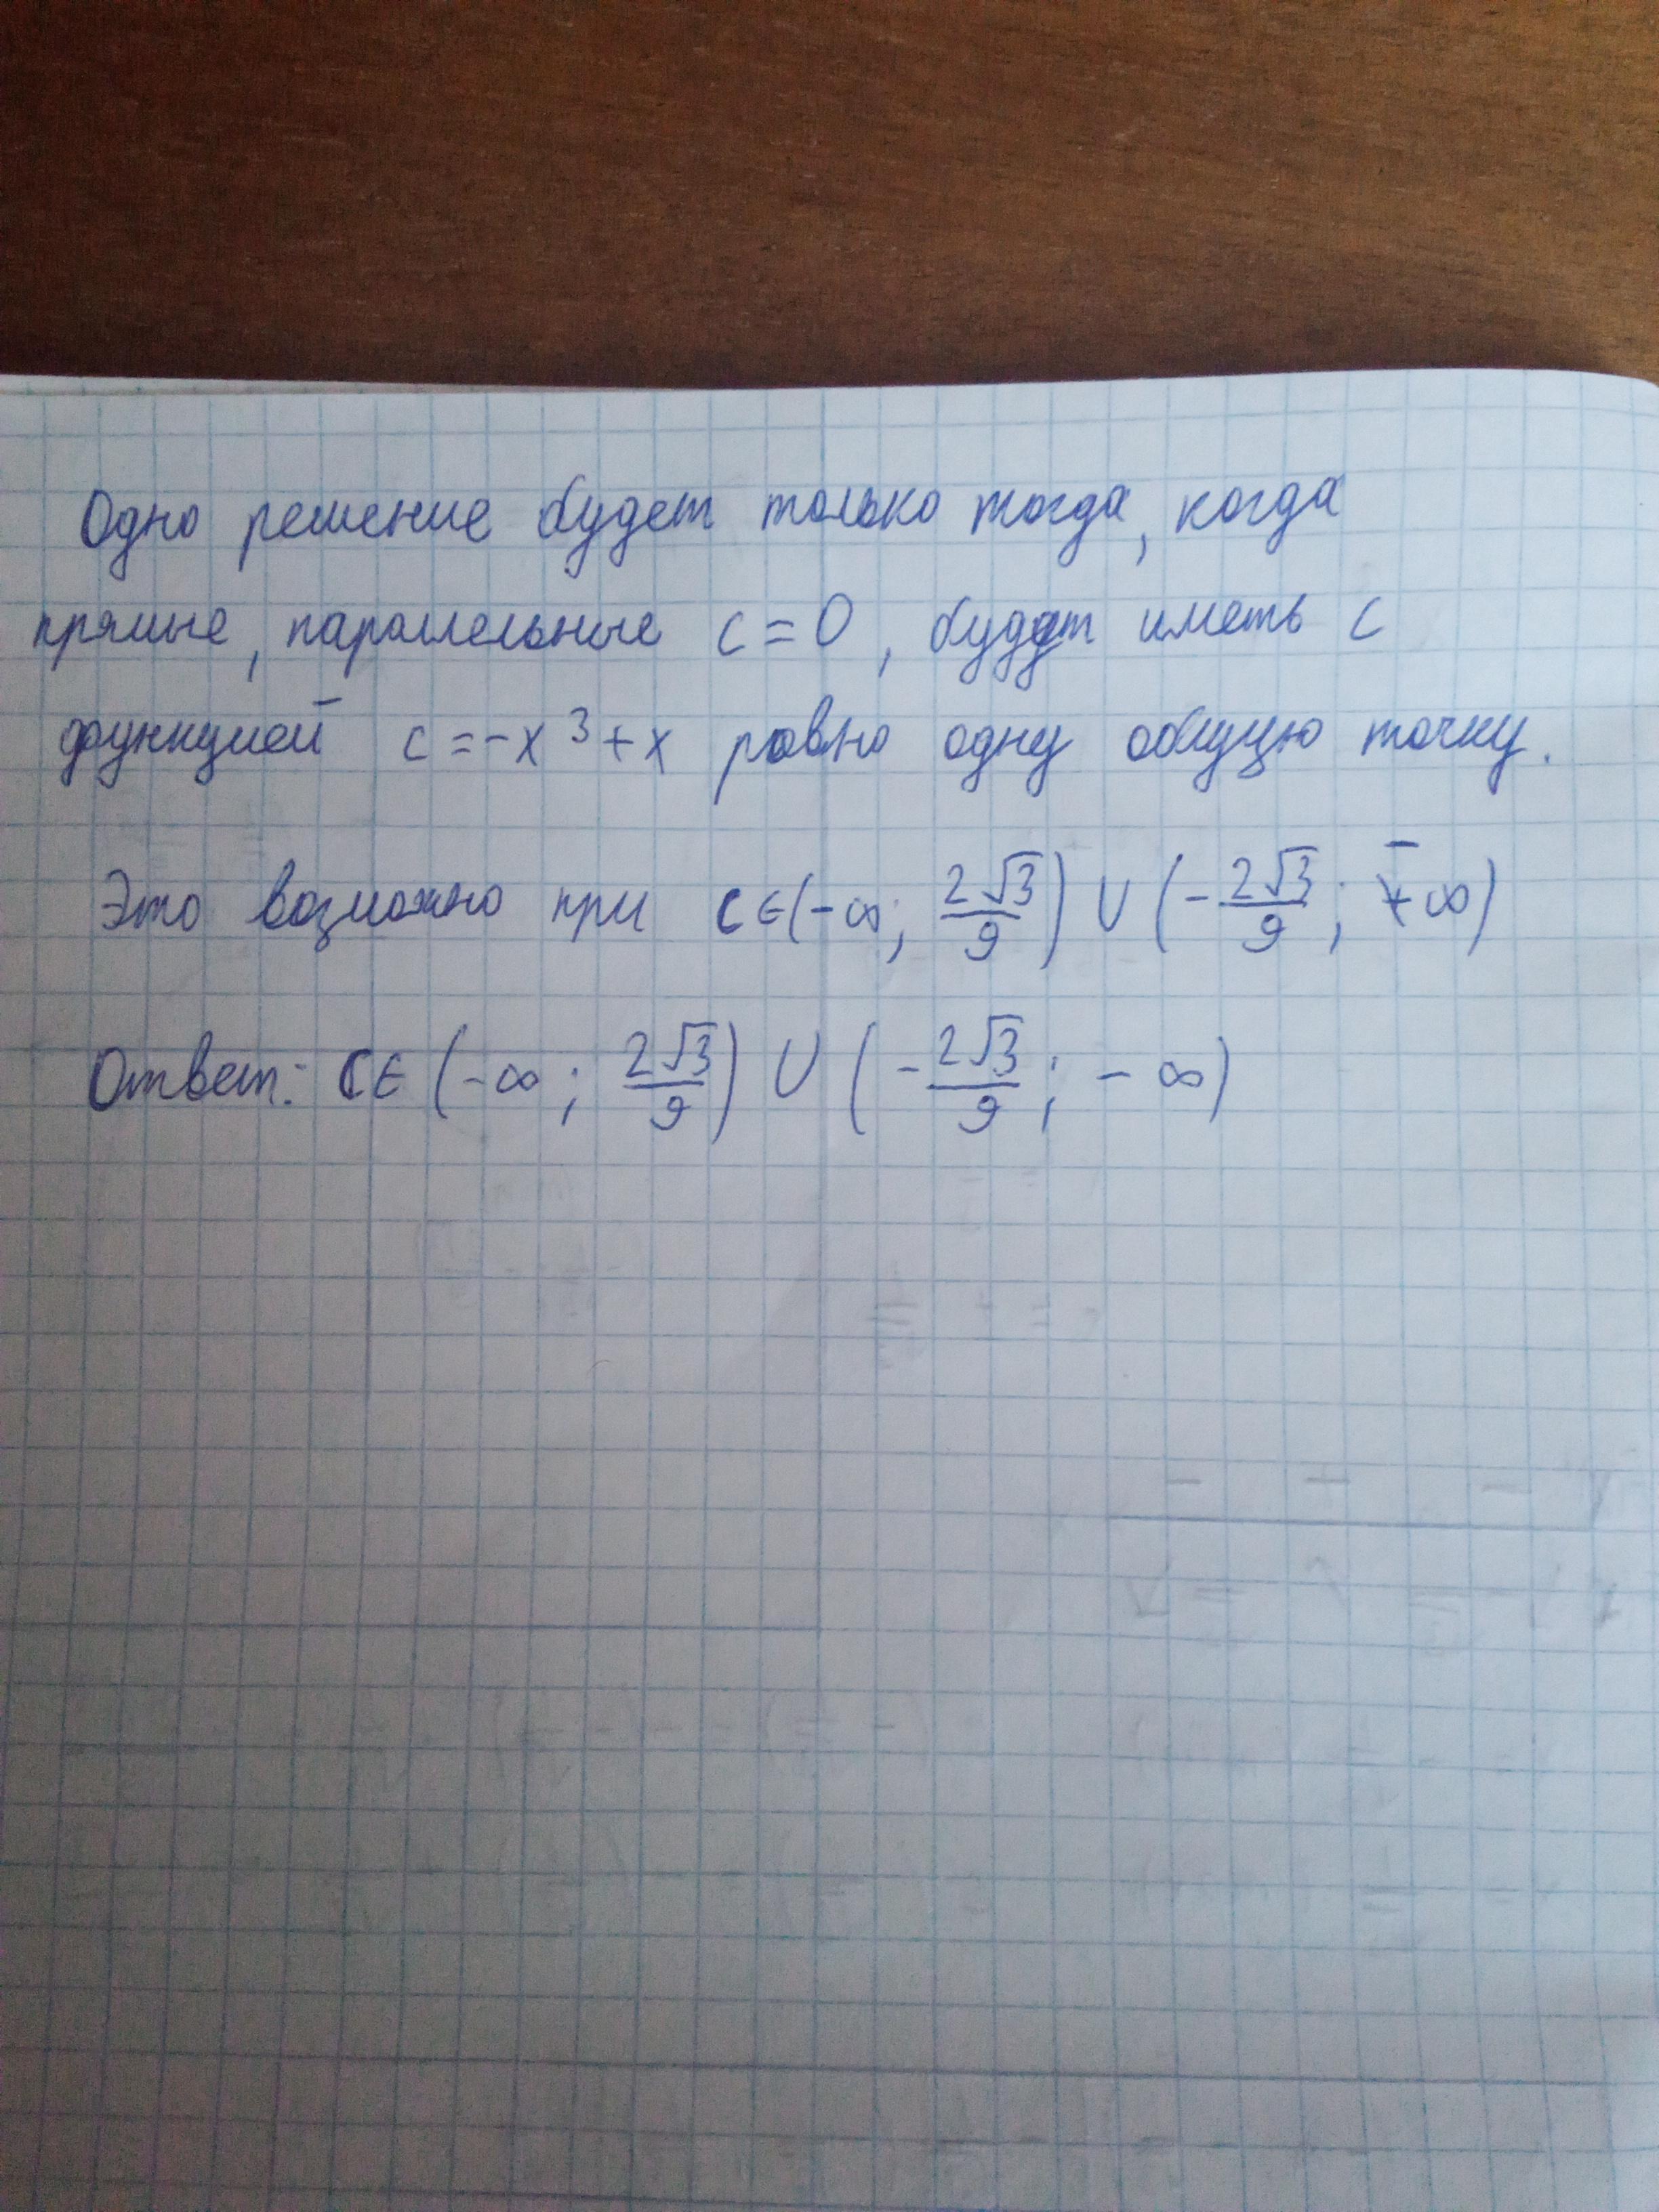 Одно решение будет только тогда, когда
прямые, параллельные c = 0, будут иметь с
функцией c = -x³ + x ровно одну общую точку.
Это возможно при c ∈ (-∞; 2√3/9) ∪ (-2√3/9; -∞)
Ответ: c ∈ (-∞; 2√3/9) ∪ (-2√3/9; -∞)